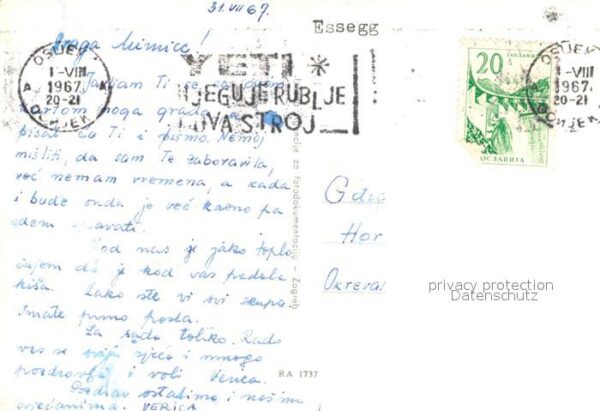 31.VII 67.
Essegg
Draga Mimice!
YETI *
NJEGUJE RUBLJE
STROJ
OSIJEK
1-VIII
1967
20-21
ОСИЈЕК
OSIJEK
1-VIII
1967
20-21
20
ЈАБЛАНИЦА
ЈУГОСЛАВИЈА
Javljam Ti se
kartom moga grada, a
pisat ću Ti i pismo. Nemoj
misliti, da sam Te zaboravila,
već nemam vremena, a kada
i bude onda je već kasno pa
idem spavati.
Kod nas je jako toplo
čujem da je kod vas padala
kiša. Kako ste vi svi skupa
Imate puno posla.
Za sada toliko. Rado
vas se sjeća i mnogo
pozdravlja i voli Verica.
Pozdrav ostalima i našim
VERICA
za fotodokumentaciju - Zagreb
RA 1737
Gđica
Hor
Okrevat
privacy protection
Datenschutz